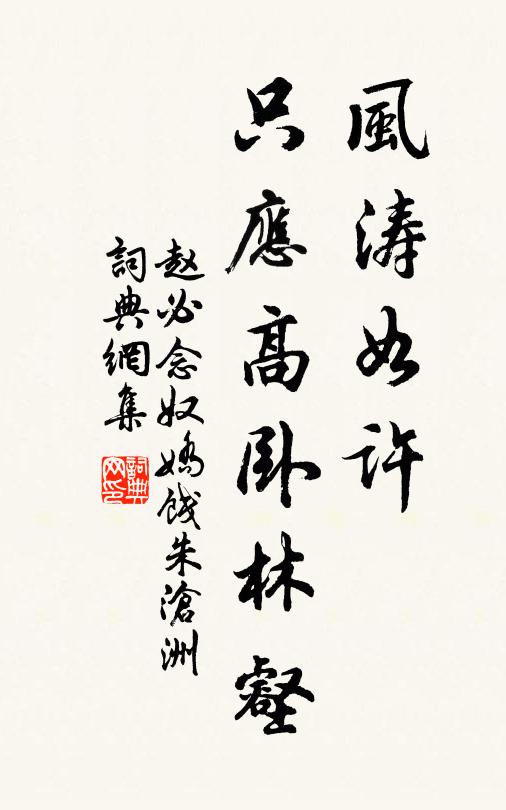 風涛如许
只應高卧林壑
赵必念奴嬌餞朱滄洲
詞典網集
詞典網印